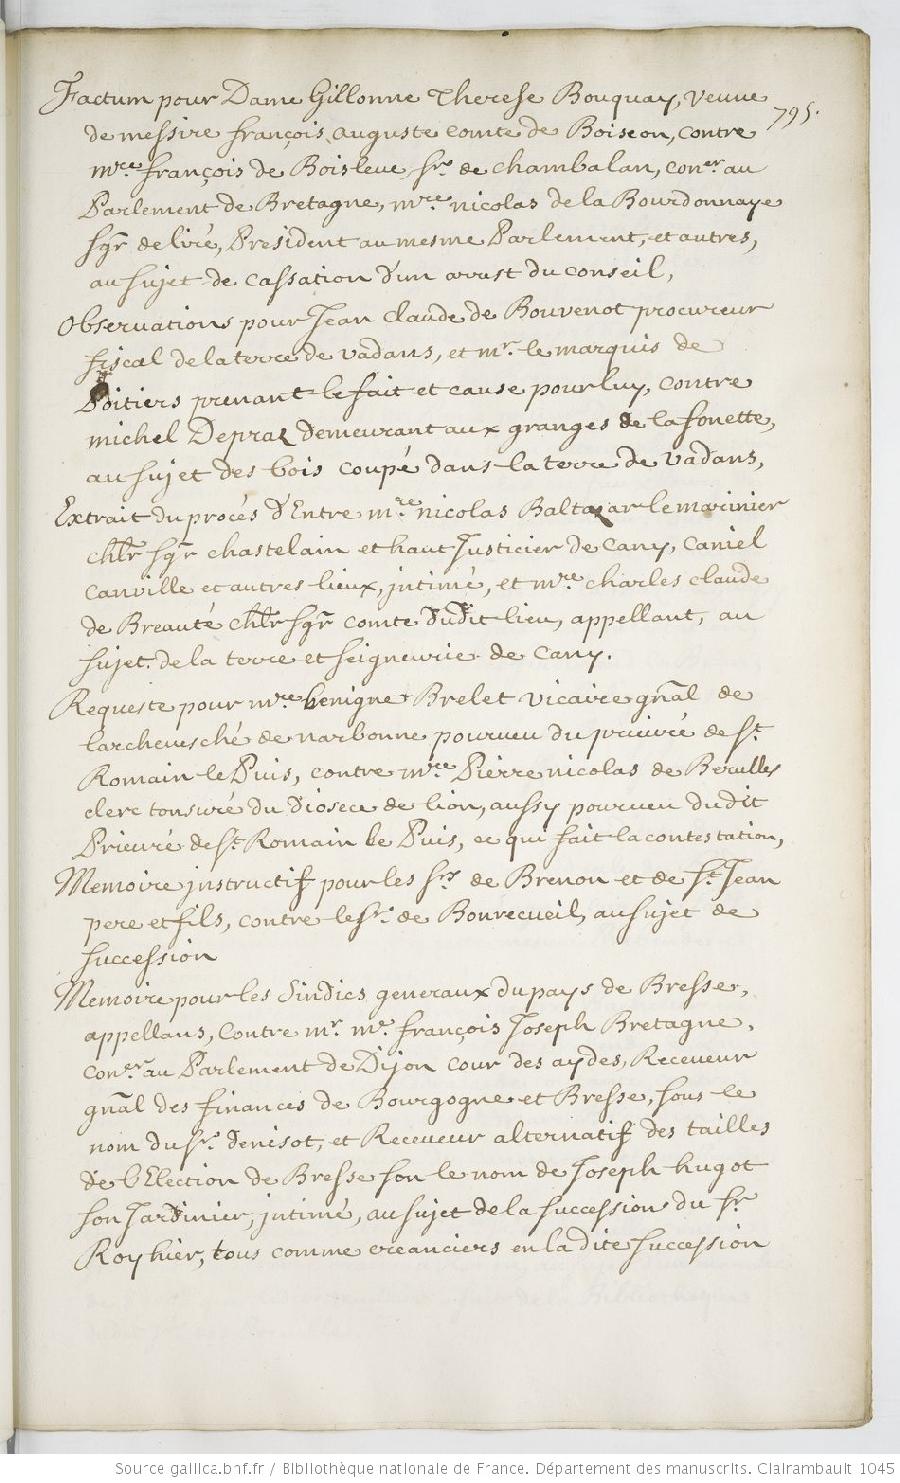 795.
Factum pour Dame Gillonne Therese Bouquay, veuue
de messire françois auguste comte de Boiseon, contre
mre françois de Boisleue, sr. de chambalan, coner. au
Parlement de Bretagne, mre nicolas de la Bourdonnaye
sgr de liré, President au mesme Parlement, et autres,
au sujet de cassation d'un arrest du conseil,
Observations pour Jean Claude de Bouvenot procureur
fiscal de la terre de vadans, et mr. le marquis de
Poitiers prenant le fait et cause pour luy, contre
michel Depraz demeurant aux granges de lafonette,
au sujet des bois coupé dans la terre de vadans,
Extrait du procés d'Entre mre nicolas Baltazar le marinier
chlr sgr chastelain et haut Justicier de Cany, Caniel
Canville et autres lieux, intimé, et mre charles claude
de Breauté chlr sgr comte dudit lieu, appellant, au
sujet de la terre et seigneurie de Cany.
Requeste pour mre benigne Brelet vicaire gnal de
larchevesché de narbonne pourueu du prieuré de St.
Romain le Puis, contre mre Pierre nicolas de Berulles
clerc tonsuré du diosece de lion, aussy pourueu dudit
Prieuré de St. Romain le Puis, ce qui fait la contestation,
Memoire instructif pour les srs de Brenon et de St. Jean
pere et fils, contre le sr. de Bourecueil, au sujet de
succession
Memoire pour les Sindics generaux du pays de Bresse,
appellans, Contre mr. me. françois Joseph Bretagne,
coner. au Parlement de Dijon cour des aydes, Receueur
gnal des finances de Bourgogne et Bresse, sous le
nom du sr. denisot, et Receueur alternatif des tailles
de l'Election de Bresse sou le nom de Joseph hugot
son Jardinier, intimé, au sujet de la succession du sr
Royhier, tous comme creanciers en la dite succession
Source gallica.bnf.fr / Bibliothèque nationale de France. Département des manuscrits. Clairambault 1045